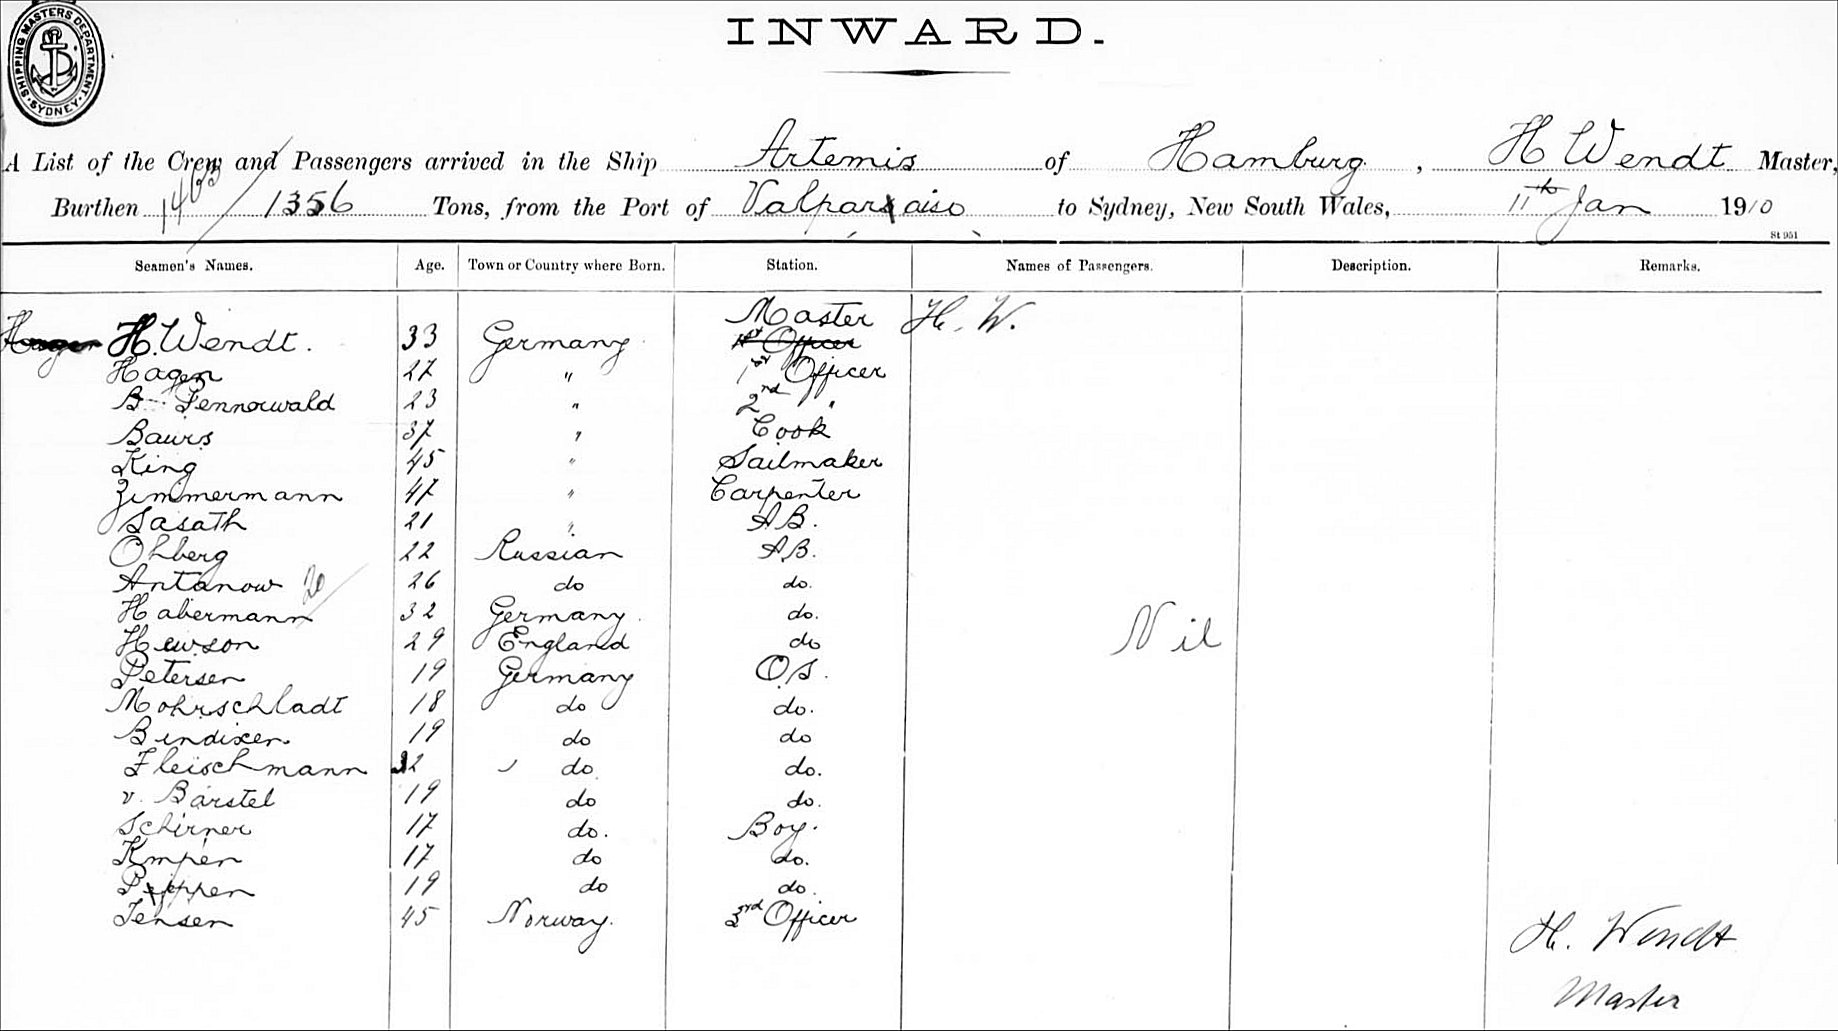 SHIPPING MASTERS DEPARTMENT. SYDNEY.
INWARD.
A List of the Crew and Passengers arrived in the Ship Artemis of Hamburg, H Wendt Master,
Burthen 1463 / 1356 Tons, from the Port of Valparaiso to Sydney, New South Wales, 11th Jan 1910
St 951
Seamen's Names. Age. Town or Country where Born. Station. Names of Passengers. Description. Remarks.
Master H. W.
H. Wendt. 33 Germany 1st Officer
Hagen 27 " 1st Officer
B Pennowald 23 " 2nd "
Baurs 37 " Cook
King 45 " Sailmaker
Zimmermann 47 " Carpenter
Sasath 21 " AB.
Ohberg 22 Russian AB.
Antanow 20 26 do do.
Habermann 32 Germany do.
Hewson 29 England do Nil
Petersen 19 Germany O.S.
Mohrschladt 18 do do.
Bendixen 19 do do
Fleischmann 32 do do.
v. Barstel 19 do do.
Schirner 17 do. Boy.
Kmpen 17 do do.
19 do do.
Jensen 45 Norway. 3rd Officer
H. Wendt
Master